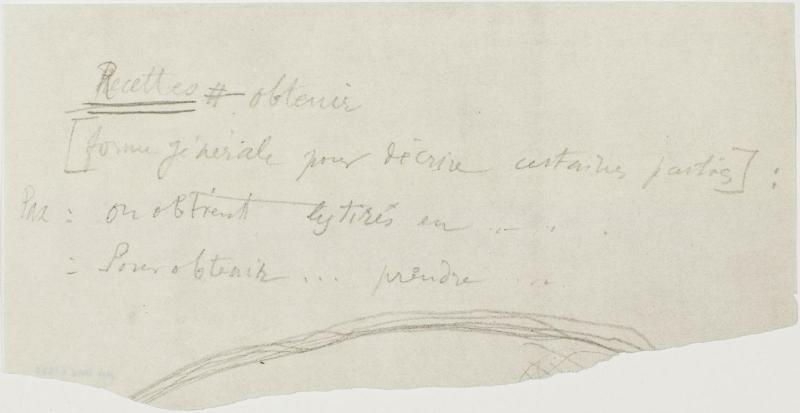 Recettes # obtenir
[forme générale pour décrire certaines parties] :
Par ex : on obtient en ... ...
= Pour obtenir ... prendre ...